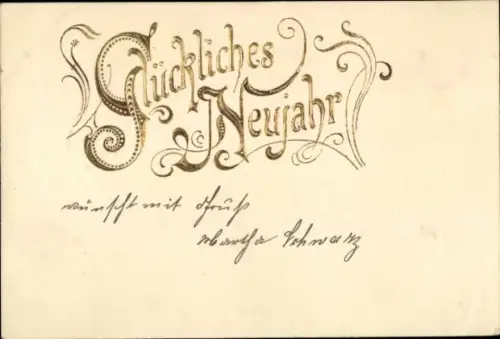 Glückliches
Neujahr
wünscht mit Gruß
Martha Schwarz